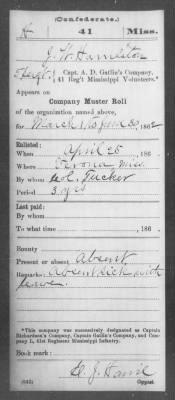 (Confederate.)
H 41 Miss.
J. W. Hamilton
Sergt., Capt. A. D. Gatlin's Company,
41 Reg't Mississippi Volunteers.*
Appears on
Company Muster Roll
of the organization named above,
for March 1 to June 30, 1862
Enlisted:
When April 25, 186
Where Verona Miss.
By whom Col. Tucker
Period 3 yrs
Last paid:
By whom
To what time , 186
Bounty
Present or absent Absent
Remarks: Absent sick with
fever.
*This company was successively designated as Captain
Richardson's Company, Captain Gatlin's Company, and
Company L, 41st Regiment Mississippi Infantry.
Book mark:
(642)
Copyist.